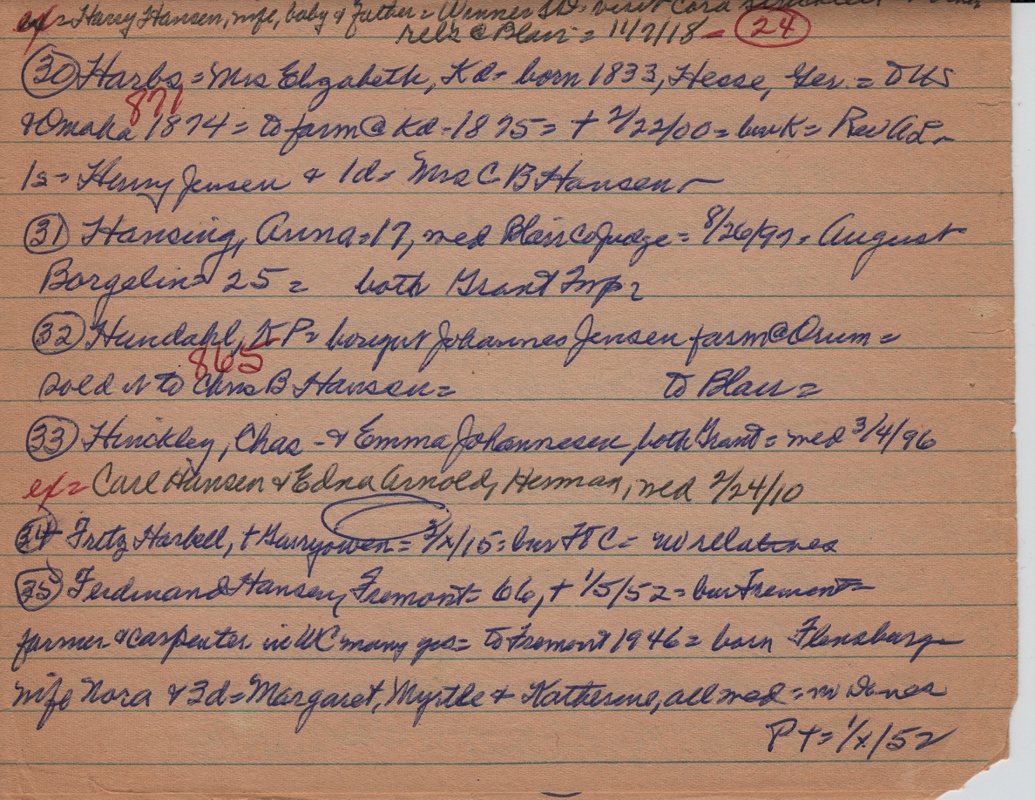 ex = Harry Hansen, wife, baby & father = Winner SD = visit Cora
rel's @ Blair = 11/7/18 - 24
30 Harbs = Mrs Elizabeth, Kd = born 1833, Hesse, Ger. = to US
871
& Omaha 1874 = to farm @ Kd - 1875 = + 2/22/00 = bur K = Rev
1s = Henry Jensen & 1d = Mrs C B Hansen -
31 Hansing, Anna = 17, med Blair Co Judge = 8/26/97 = August
Borgelin = 25 = both Grant Twp
32 Hundahl, K P = bought Johannes Jensen farm @ Orum =
865
sold it to Chris B Hansen = to Blair =
33 Hinckley, Chas - & Emma Johannesen, both Grant = med 3/4/96
ex = Carl Hansen & Edna Arnold, Herman, med 2/24/10
34 Fritz Harbell, + Garryowen = 2/x/15 = bur Ft C = no relatives
35 Ferdinand Hansen, Fremont = 66, + 1/5/52 = bur Fremont =
farmer & carpenter in WC many yrs = to Fremont 1946 = born Flensburg
wife Nora & 3d = Margaret, Myrtle & Katherine, all med =
P T = 1/x/52